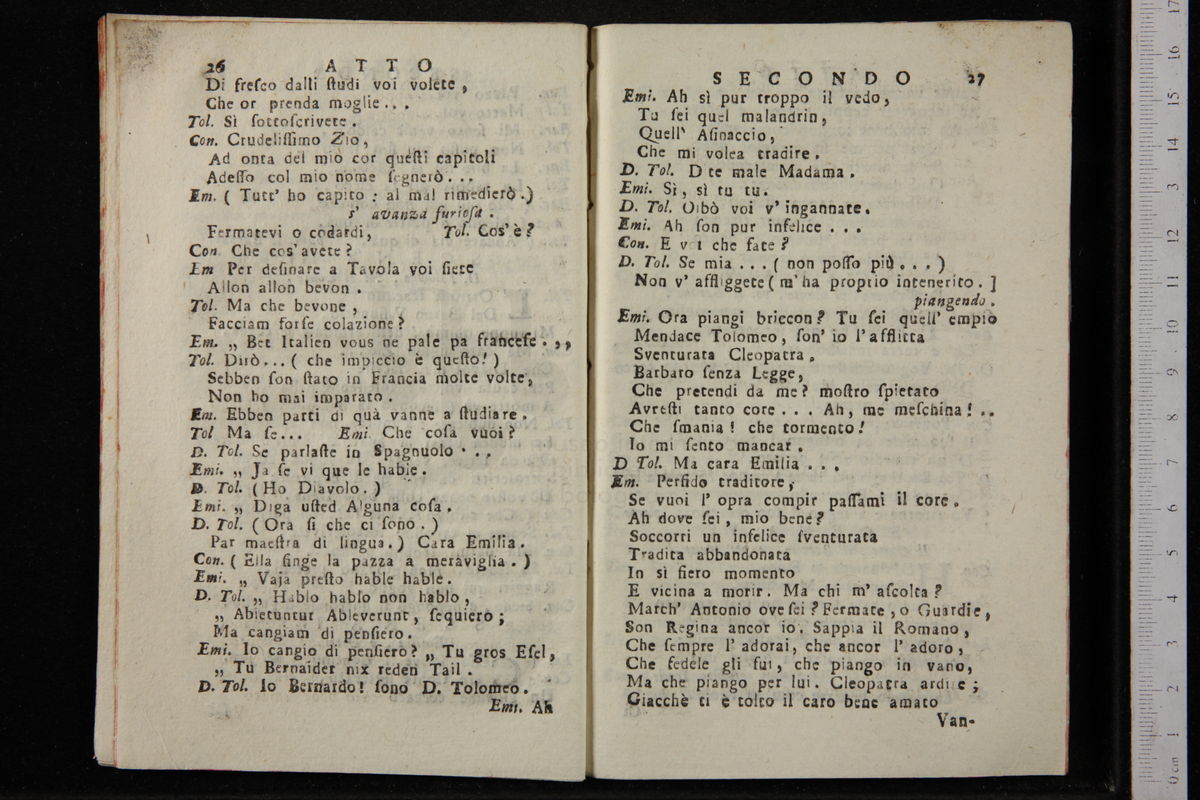 26 A T T O
Di freſco dalli ſtudi voi volete,
Che or prenda moglie...
Tol. Sì ſottoſcrivete.
Con. Crudeliſſimo Zio,
Ad onta del mio cor queſti capitoli
Adeſſo col mio nome ſegnerò...
Em. ( Tutt' ho capito: al mal rimedierò.)
s' avanza furioſa.
Fermatevi o codardi, Tol. Cos' è?
Con. Che cos' avete?
Em Per deſinare a Tavola voi ſiete
Allon allon bevon.
Tol. Ma che bevone,
Facciam forſe colazione?
Em. „ Bet Italien vous ne pale pa franceſe. ,,
Tol. Dirò... ( che impiccio è queſto! )
Sebben ſon ſtato in Francia molte volte,
Non ho mai imparato.
Em. Ebben parti di quà vanne a ſtudiare.
Tol Ma ſe... Emi. Che coſa vuoi?
D. Tol. Se parlaſte in Spagnuolo...
Emi. „ Ja ſe vi que le hable.
D. Tol. (Ho Diavolo.)
Emi. „ Diga uſted Alguna coſa.
D. Tol. (Ora ſi che ci ſono.)
Par maeſtra di lingua.) Cara Emilia.
Con. ( Ella finge la pazza a meraviglia. )
Emi. „ Vaja preſto hable hable.
D. Tol. „ Hablo hablo non hablo,
„ Abietuntur Ableverunt, ſequiero;
Ma cangiam di penſiero.
Emi. Io cangio di penſiero? „ Tu gros Eſel,
„ Tu Bernaider nix reden Tail.
D. Tol. Io Bernardo! ſono D. Tolomeo.
Emi. Ah
S E C O N D O 27
Emi. Ah sì pur troppo il vedo,
Tu ſei quel malandrin,
Quell' Aſinaccio,
Che mi volea tradire.
D. Tol. D te male Madama.
Emi. Sì, sì tu tu.
D. Tol. Oibò voi v' ingannate.
Emi. Ah ſon pur infelice...
Con. E voi che fate?
D. Tol. Se mia... ( non poſſo più...)
Non v' affliggete ( m' ha proprio intenerito.]
piangendo.
Emi. Ora piangi briccon? Tu ſei quell' empio
Mendace Tolomeo, ſon' io l' afflitta
Sventurata Cleopatra.
Barbaro ſenza Legge,
Che pretendi da me? moſtro ſpietato
Avreſti tanto core... Ah, me meſchina! ..
Che ſmania! che tormento!
Io mi ſento mancar.
D Tol. Ma cara Emilia...
Em. Perfido traditore,
Se vuoi l' opra compir paſſami il core.
Ah dove ſei, mio bene?
Soccorri un infelice ſventurata
Tradita abbandonata
In sì fiero momento
E vicina a morir. Ma chi m' aſcolta?
March' Antonio ove ſei? Fermate, o Guardie,
Son Regina ancor io. Sappia il Romano,
Che ſempre l' adorai, che ancor l' adoro,
Che fedele gli fui, che piango in vano,
Ma che piango per lui. Cleopatra ardire;
Giacchè ti è tolto il caro bene amato
Van-